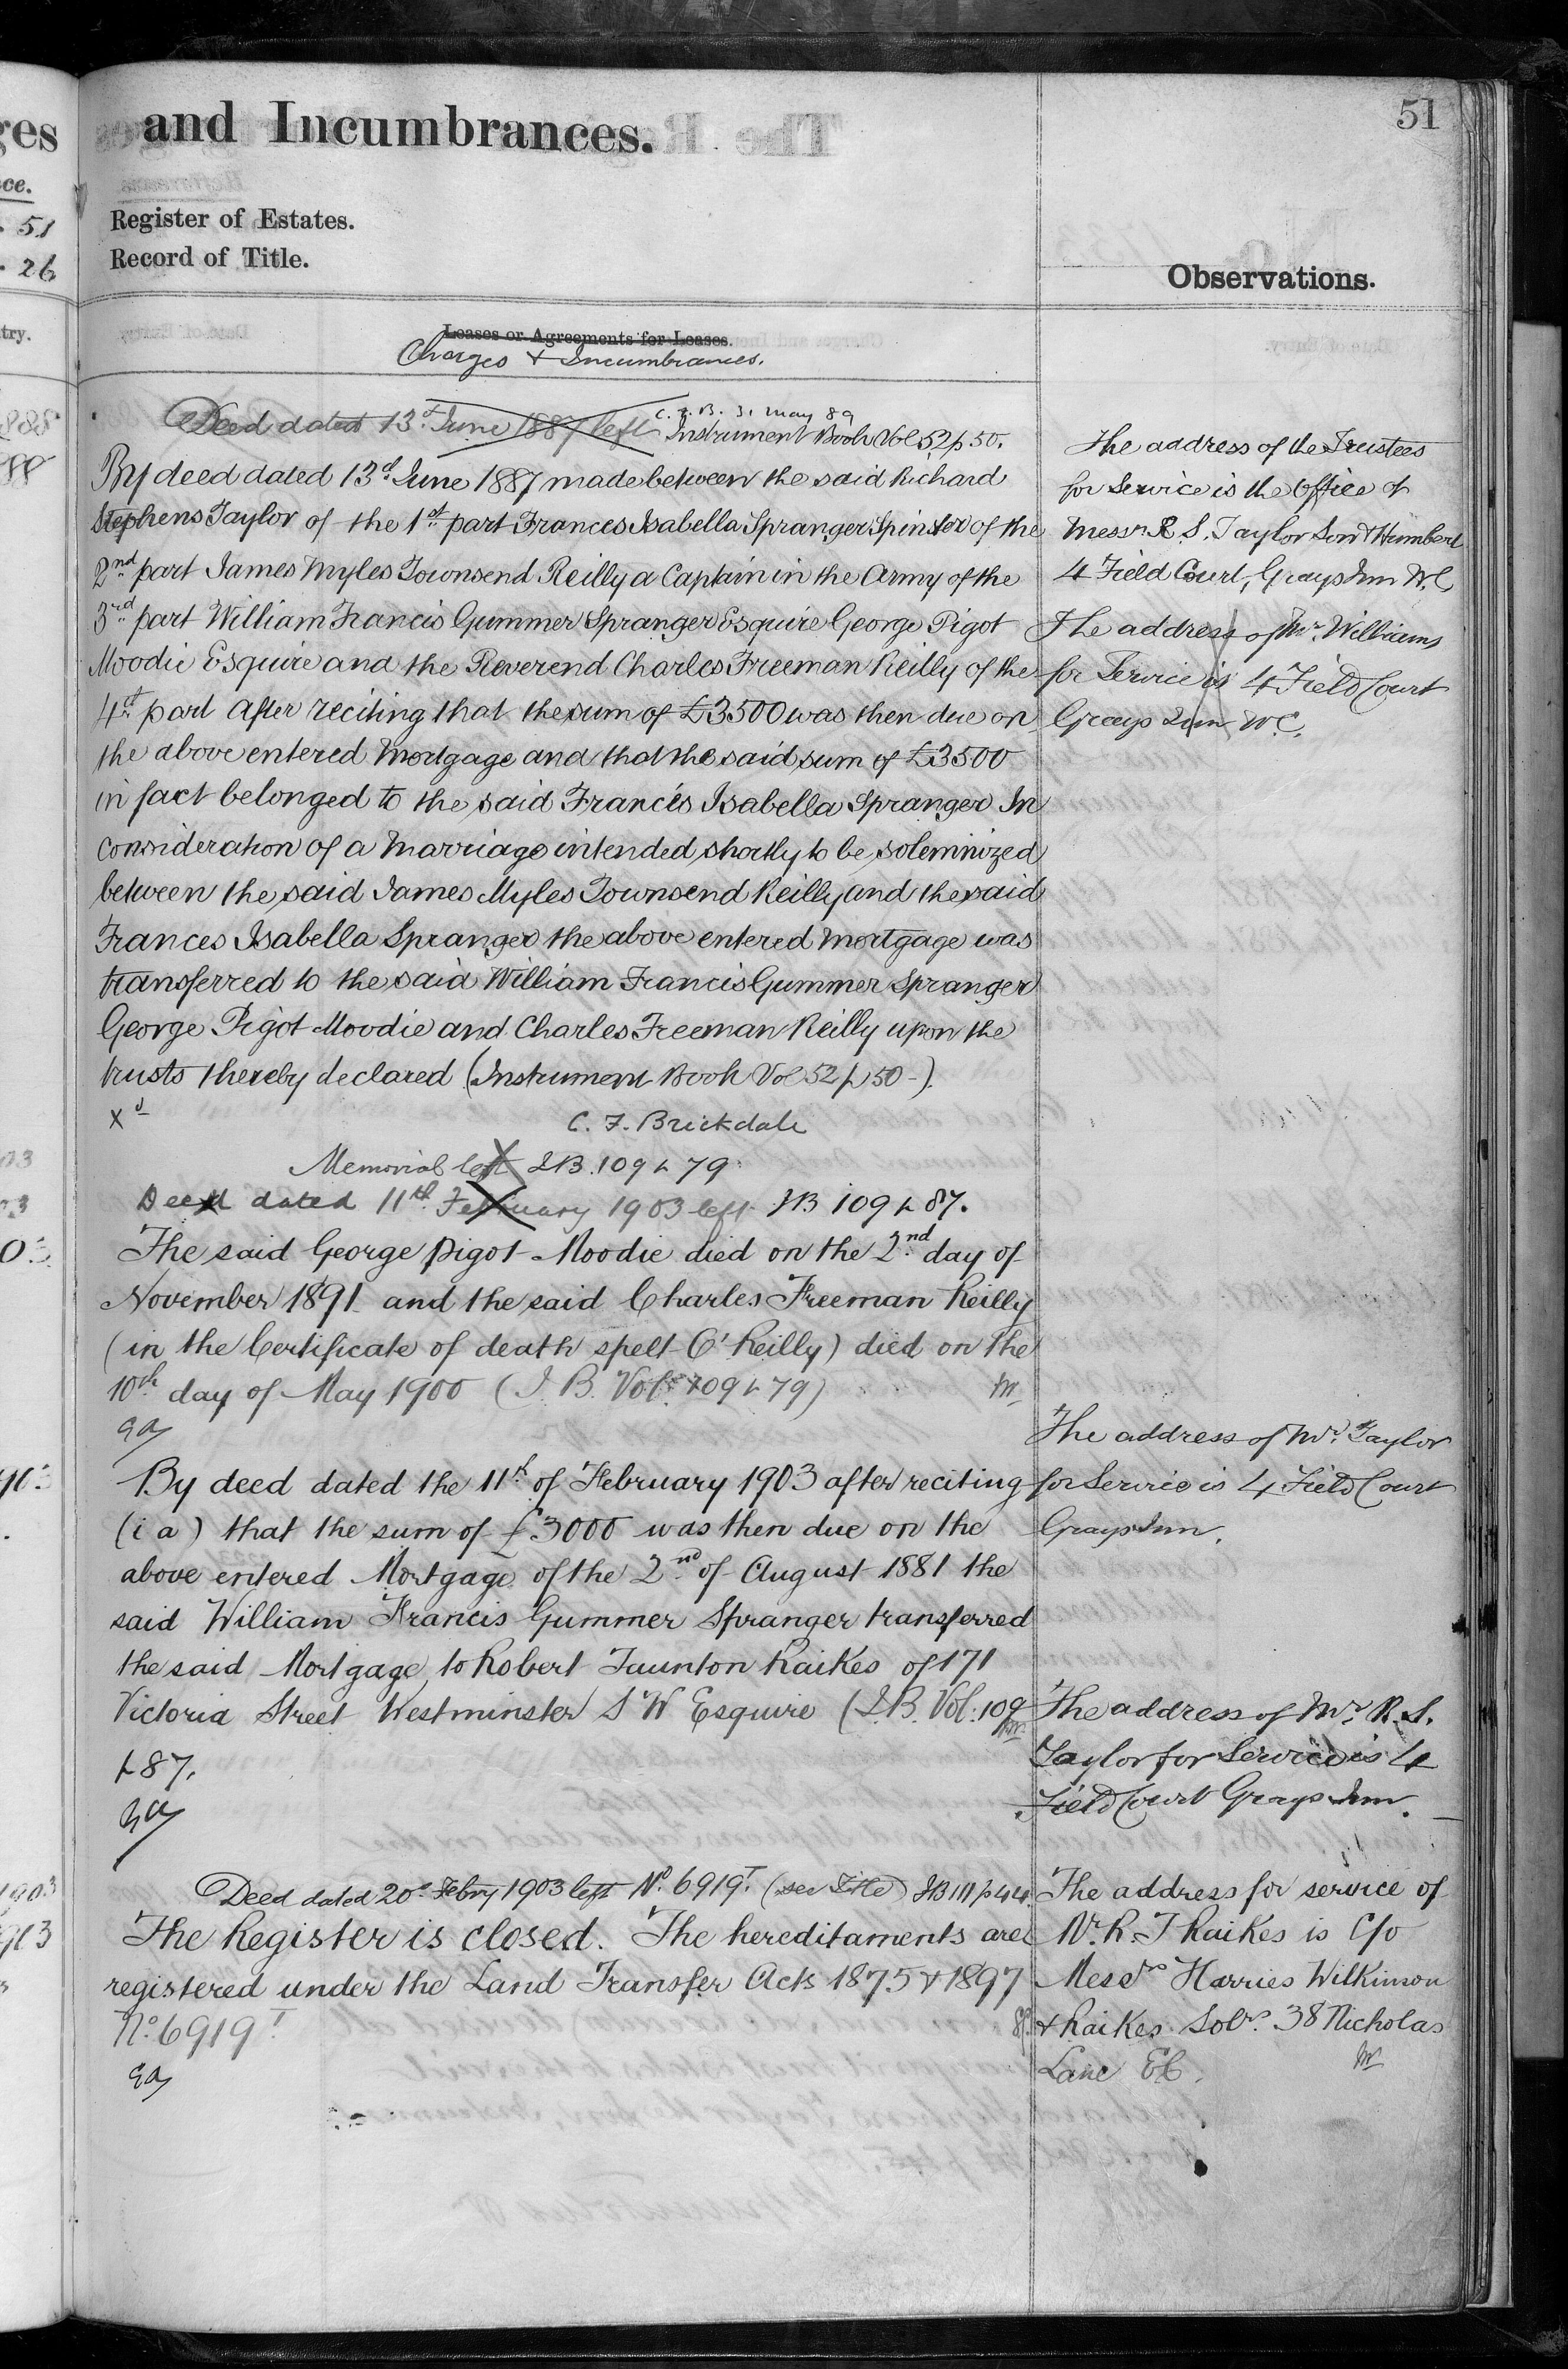 and Incumbrances.
51
Register of Estates.
Record of Title.
Observations.
Leases or Agreements for Leases.
Charges & Incumbrances.
C. F. B. 31 May 89
Deed dated 13th June 1887 left Instrument Book Vol 52 p 50.
By deed dated 13th June 1887 made between the said Richard
Stephens Taylor of the 1st part Frances Isabella Spranger Spinster of the
2nd part James Myles Townsend Reilly a Captain in the Army of the
3rd part William Francis Gummer Spranger Esquire George Pigot
Moodie Esquire and the Reverend Charles Freeman Reilly of the
4th part after reciting that the sum of £3500 was then due on
the above entered Mortgage and that the said sum of £3500
in fact belonged to the said Frances Isabella Spranger In
consideration of a Marriage intended shortly to be solemnized
between the said James Myles Townsend Reilly and the said
Frances Isabella Spranger the above entered Mortgage was
transferred to the said William Francis Gummer Spranger
George Pigot Moodie and Charles Freeman Reilly upon the
trusts thereby declared (Instrument Book Vol 52 p 50-).
C. F. Brickdale
Memorial left I.B. 109 p 79.
Deed dated 11th February 1903 left I.B 109 p 87.
The said George Pigot Moodie died on the 2nd day of
November 1891 and the said Charles Freeman Reilly
(in the Certificate of death spelt O'Reilly) died on the
10th day of May 1900 (I. B. Vol: 109 p 79)
By deed dated the 11th of February 1903 after reciting
(i a) that the sum of £3000 was then due on the
above entered Mortgage of the 2nd of August 1881 the
said William Francis Gummer Spranger transferred
the said Mortgage to Robert Taunton Raikes of 171
Victoria Street Westminster S W Esquire (I.B. Vol: 109
p 87.
Deed dated 20th Febry 1903 left No. 6919T. (see Title) IB 111 p 44.
The Register is closed. The hereditaments are
registered under the Land Transfer Acts 1875 & 1897
No 6919 T
The address of the Trustees
for Service is the Office of
Messrs R. S. Taylor Son & Humbert
4 Field Court, Grays Inn W.C.
The address of Mr. Williams
for Service is 4 Field Court
Grays Inn W.C.
The address of Mr. Taylor
for Service is 4 Field Court
Grays Inn.
The address of Mr. R. S.
Taylor for Service is 4
Field Court Grays Inn.
The address for service of
Mr. R. T Raikes is C/o
Messrs Harries Wilkinson
& Raikes Solrs. 38 Nicholas
Lane EC.